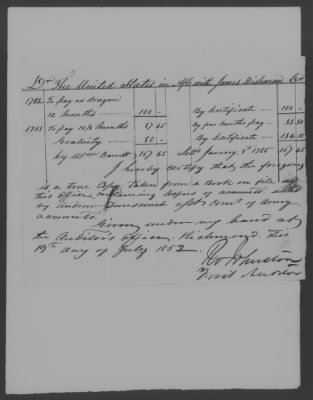 Dr The United States in A/c with James Dishman Cr
1782 To pay as dragoon
12 months 100 - By Certificate 100 -
1783 To pay 10½ months 87 45 By four months pay 33 30
Gratuity 80 - By Certificate 134 15
by Wm Barrett 167 45 Settd January 5th 1785 167 45
I hereby certify that the foregoing
is a true Copy taken from a Book on file in
this Office containing copies of accounts settled
by Andrew Dunscomb asst Comr of Army
accounts.
Given under my hand at
the Auditor's Office, Richmond, this
19th day of July 1852
Ro Johnston
First Auditor